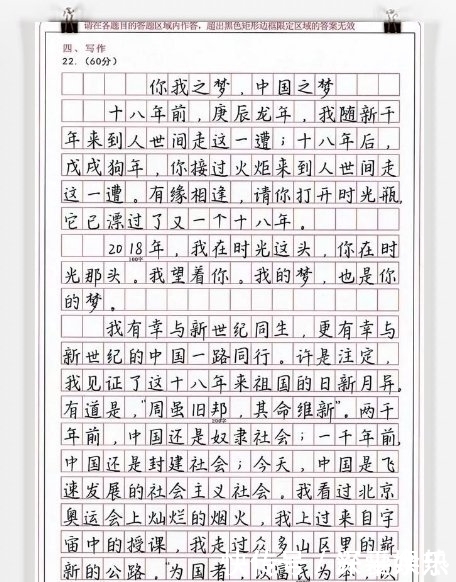 请在各题目的答题区域内作答，超出黑色矩形边框限定区域的答案无效
四、写作
22.（60分）
你我之梦，中国之梦
十八年前，庚辰龙年，我随新千
年来到人世间走这一遭；十八年后，
戊戌狗年，你接过火炬来到人世间走
这一遭。有缘相逢，请你打开时光瓶，
它已漂过了又一个十八年。
2018年，我在时光这头，你在时
100字
光那头。我望着你。我的梦，也是你
的梦。
我有幸与新世纪同生，更有幸与
新世纪的中国一路同行。许是注定，
我见证了这十八年来祖国的日新月异。
有道是，“周虽旧邦，其命维新”。两千
200字
年前，中国还是奴隶社会；一千年前，
中国还是封建社会；今天，中国是飞
速发展的社会主义社会。我看过北京
奥运会上灿烂的烟火，我上过来自宇
宙中的授课，我走过众多山区里的崭
新的公路。为国者，以富民为